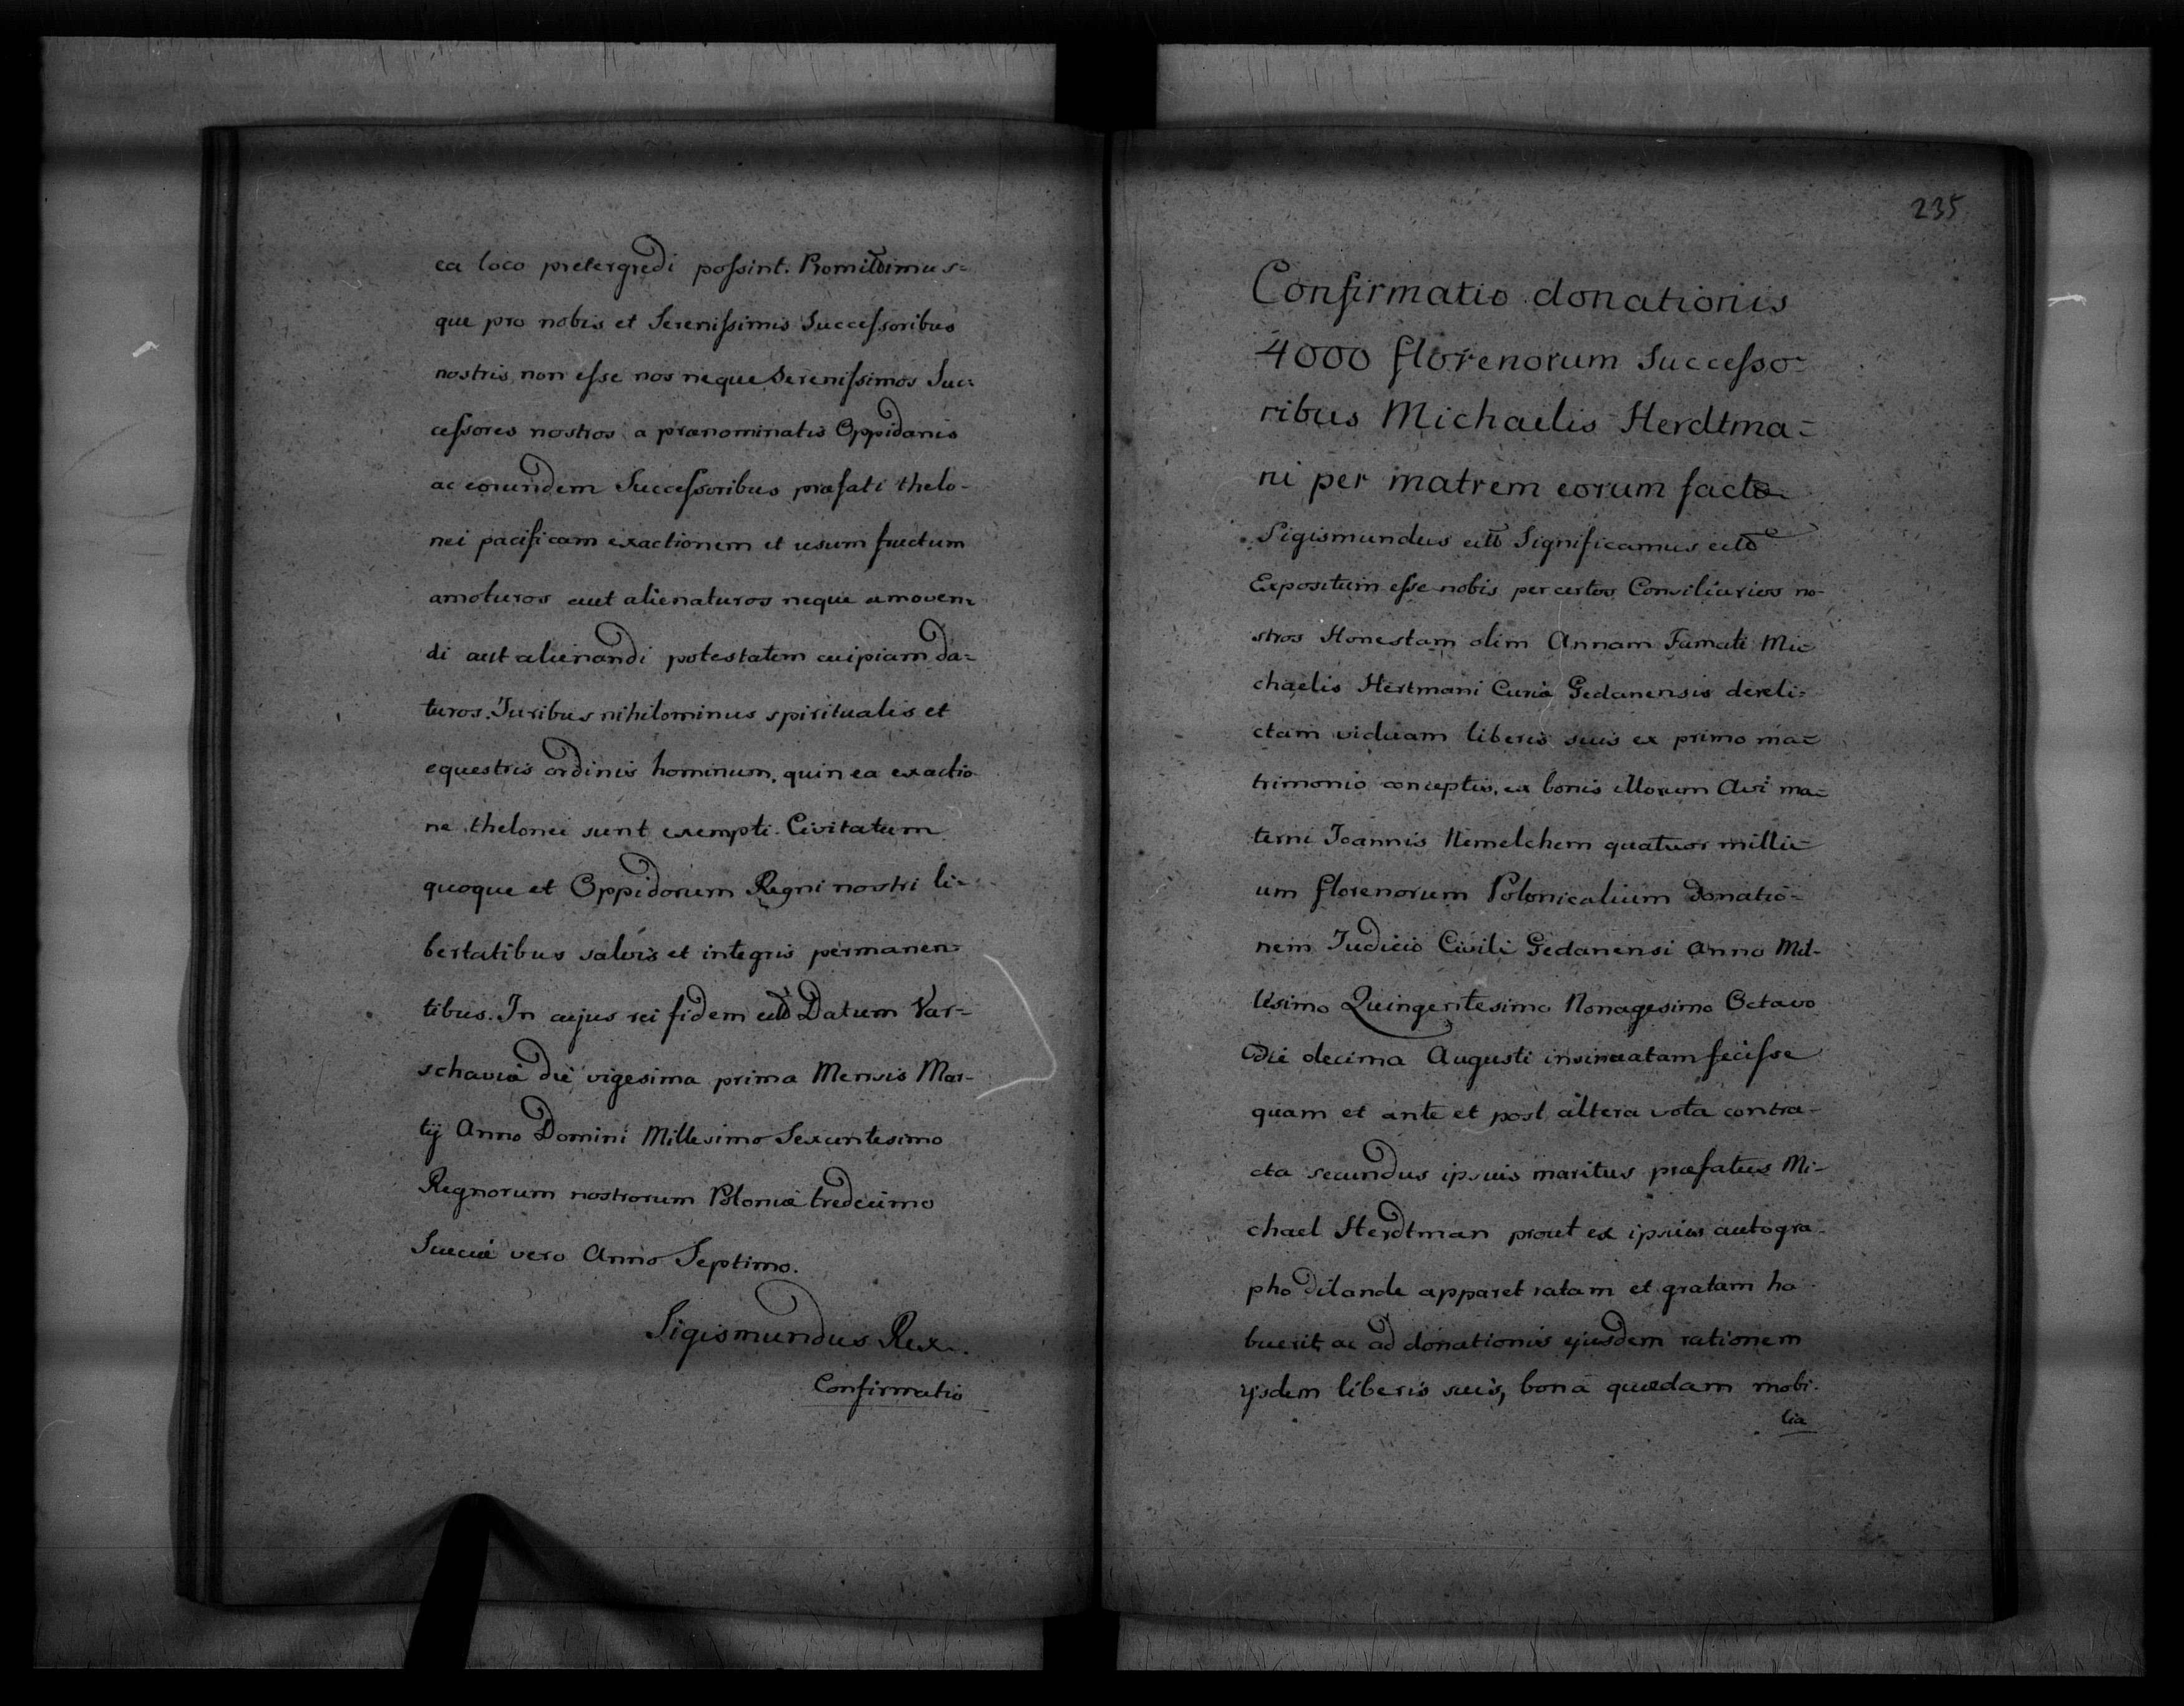 ea loco pretergredi possint. Promittimus-
que pro nobis et Serenissimis Successoribus
nostris non esse nos neque Serenissimos Suc-
cessores nostros a prænominatis Oppidanis
ac eorundem Successoribus præfati thelo-
nei pacificam exactionem et usum fructum
amoturos aut alienaturos neque amoven-
di aut alienandi potestatem cuipiam da-
turos. Juribus nihilominus spiritualis et
equestris ordinis hominum, qui in ea exactio
ne thelonei sunt exempti. Civitatum
quoque et Oppidorum Regni nostri li-
bertatibus salvis et integris permanen-
tibus. In cujus rei fidem Datum Var-
schaviæ die vigesima prima Mensis Mar-
tij Anno Domini Millesimo Sexcentesimo
Regnorum nostrorum Poloniæ tredecimo
Sueciæ vero Anno Septimo.
Sigismundus Rex.
Confirmatio
235
Confirmatio donationis
4000 florenorum Successo-
ribus Michaelis Herdtma-
ni per matrem eorum factæ
Sigismundus Significamus
Expositum esse nobis per certos Consiliarios no-
stros Honestam olim Annam Famati Mi-
chaelis Hertmani Curiæ Gedanensis dereli-
ctam viduam liberis suis ex primo ma-
trimonio conceptis, ex bonis illorum Avi ma-
terni Joannis Nemelchem quatuor milli-
um florenorum Polonicalium donatio-
nem Judicio Civili Gedanensi Anno Mil-
lesimo Quingentesimo Nonagesimo Octavo
die decima Augusti insinuatam fecisse
quam et ante et post altera vota contra-
cta secundus ipsius maritus præfatus Mi-
chael Herdtman prout ex ipsius autogra-
pho apparet ratam et gratam ha-
buerit, ac ad donationis ejusdem rationem
ijsdem liberis suis, bona quædam mobi-
lia